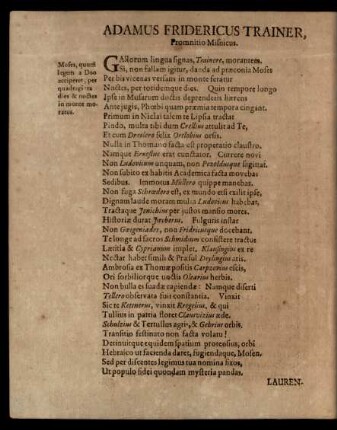 ADAMUS FRIDERICUS TRAINER,
Promnitio Misnicus.
Moses, quum
legem a Deo
acciperet, per
quadraginta
dies & noctes
in monte mo-
ratus.
GAstorum lingua signas, Trainere, morantem.
Si, non fallam igitur, danda ad præconia Moses
Per bis vicenas versans in monte
Noctes, per totidemque dies. Quin tempore longo
Ipse in Musarum doctis deprendens hærens
Ante jugis, Phœbi quam præmia tempora cingant.
Primum in Niclai talem te Lipsia tractat
Pindo, multa tibi dum Crellius attulit ad Te,
Et cum
Nulla in Thomano facta est properatio claustro.
Namque Ernestius erat cunctator. Currere novi
Non Ludovicum unquam, non
Non subito ex habitis Academica facta movebas
Sedibus. Immotus Müllero quippe manebas.
Non fuga Schrædero est, ex mundo est
Dignam laude moram multus Ludovicus habebat,
Tractaque Jenichim per justus mansio mores.
Historiæ durat Joerberus. Fulguris instar
Non non Fridericusque docebant.
Te longe ad sacros Schmidium consistere tractus
Lætitia & Cyprianum implet. Klausingius ex re
Nectar habet simili & Præsul Deylingius
Ambrosia ex Thomæ positis Carpzovius escis,
Ori sorbilioque vectis Olearius herbis.
Non bulla es suadæ rapiendæ: Namque diserti
Tellero observata fuit constantia. Vinxit
Sic te vinxit & qui
Tullius in patria floret
Schulzius & Tertullus agri, & orbis.
Transitio festinato non facta volatu!
Detinuitque equidem spatium protensius, orbi
Hebraico ut facienda daret, fugiendaque, Mosen.
Sed per discentes legimus tua nomina fixos,
Ut populo sidei quondam mysteria pandas.
LAUREN-